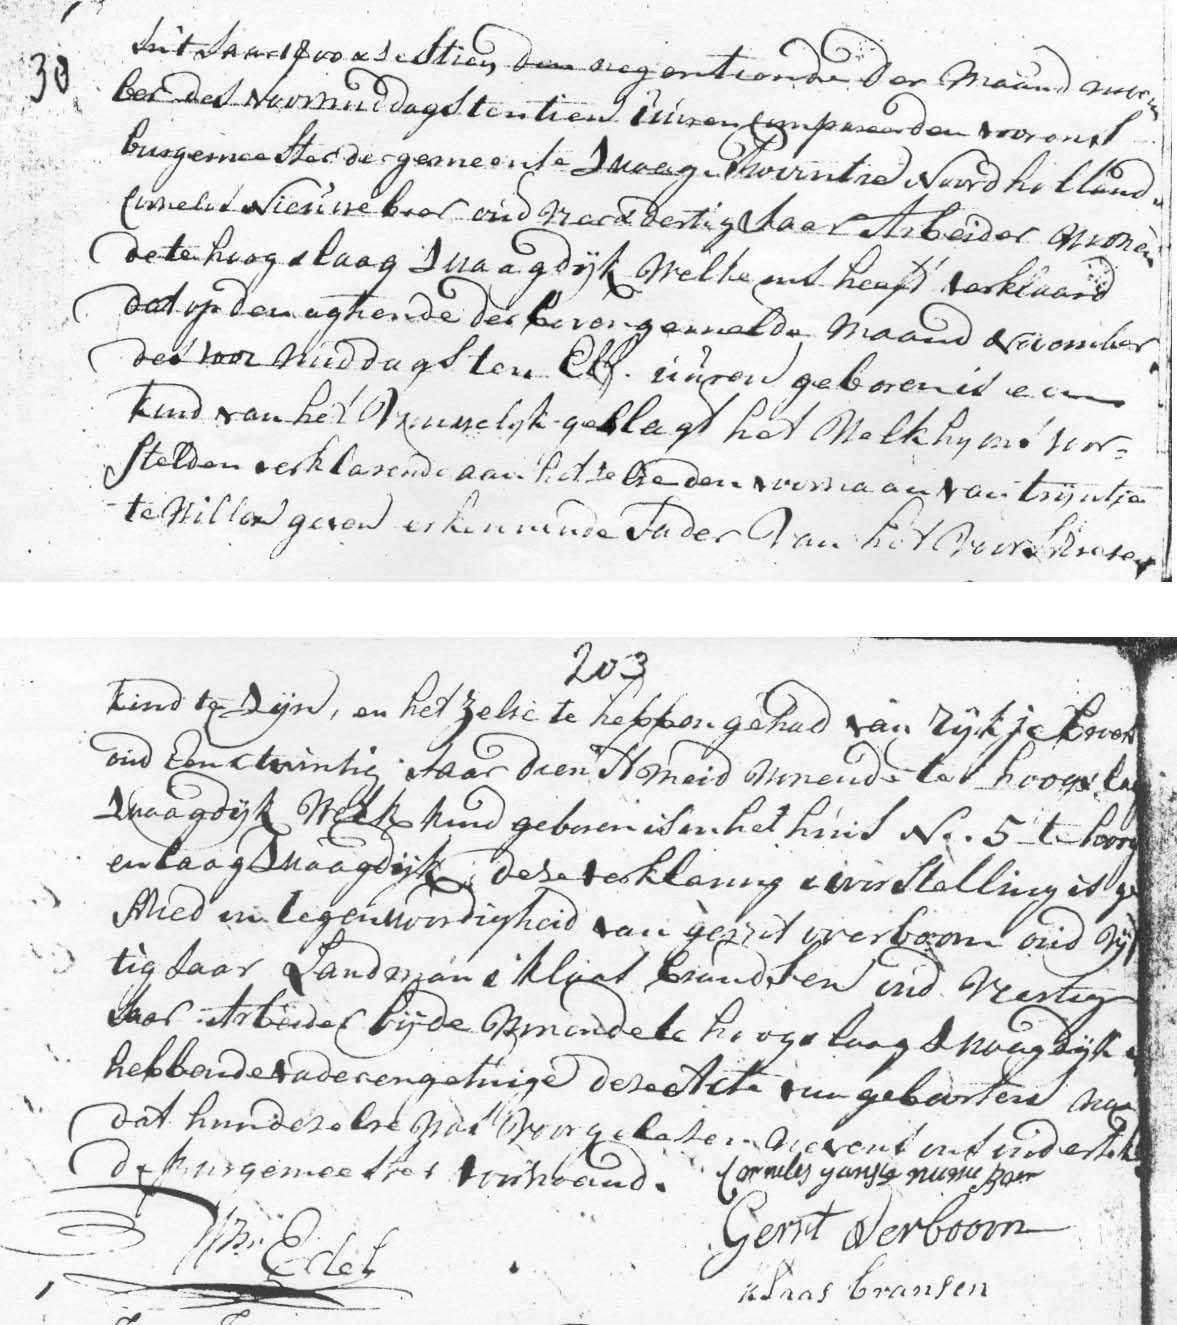 30
In't Jaar 1800 & sestien den negentiende der Maand novem
ber des voormiddags ten tien uuren Compareerden voor ons
burgemeester der gemeente Swaag Provintie Noordholland
Cornelis Nieuweboer oud vier & dertig Jaar Arbeider wonen
de te hoog & laag Swaagdijk Welke ons heeft verklaard
dat op den agtiende der bovengemelde Maand November
des voor middags ten Elf uuren geboren is een
kind van het Vrouwelijk geslagt het Welk hy ons vor=
stelden verklarende aan het zelve den voornaam van trijntje
te Willen geven erkennende Vader Van het voorschreven
203
kind te Zijn, en het zelve te hebben gehad van Rijkje broer
oud Een & twintig Jaar dienstmeid Wonende te hoog & laag
Swaagdijk Welk kind geboren is in het huis No. 5 te hoog
en laag Swaagdijk deze verklaring & voorstelling is ge
schied in tegenwoordigheid van gerrit overboom oud Vijf
tig Jaar Landman & klaas brandsen oud Veertig
Jaar Arbeider bijde Wonende te hoog & laag Swaagdijk
hebbende vader en getuige deze Acte van geboorten na
dat hun dezelve Was Voorgelesen nevens ons ondertek
de burgemeester voornoemd.
Cornelis Janse nieuwe boer
Gerrit Verboom
Edel
klaas bransen